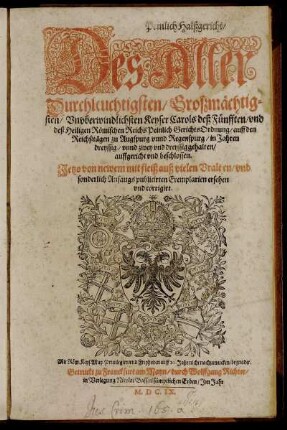 Peinlich Halßgericht/
Des Aller
Durchleuchtigsten/ Großmächtig-
sten/ Vnvberwindlichsten Keyser Carols deß Fünfften/ vnd
deß Heiligen Römischen Reichs Peinlich Gerichts Ordnung/ auff den
Reichßtägen zu Augspurg vnnd Regenspurg/ in Jahren
dreyssig/ vnnd zwey vnd dreyssig gehalten/
auffgericht vnd beschlossen.
Jetzo von newem mit fleiß auß vielen Vralten/ vnd
sonderlich Anfangs publicirten Exemplarien ersehen
vnd corrigirt.
Getruckt zu Franckfurt am Mayn/ durch Wolffgang Richter/
in Verlegung Nicolai Bassei Erben/ Im Jahr
M. DC. IX.